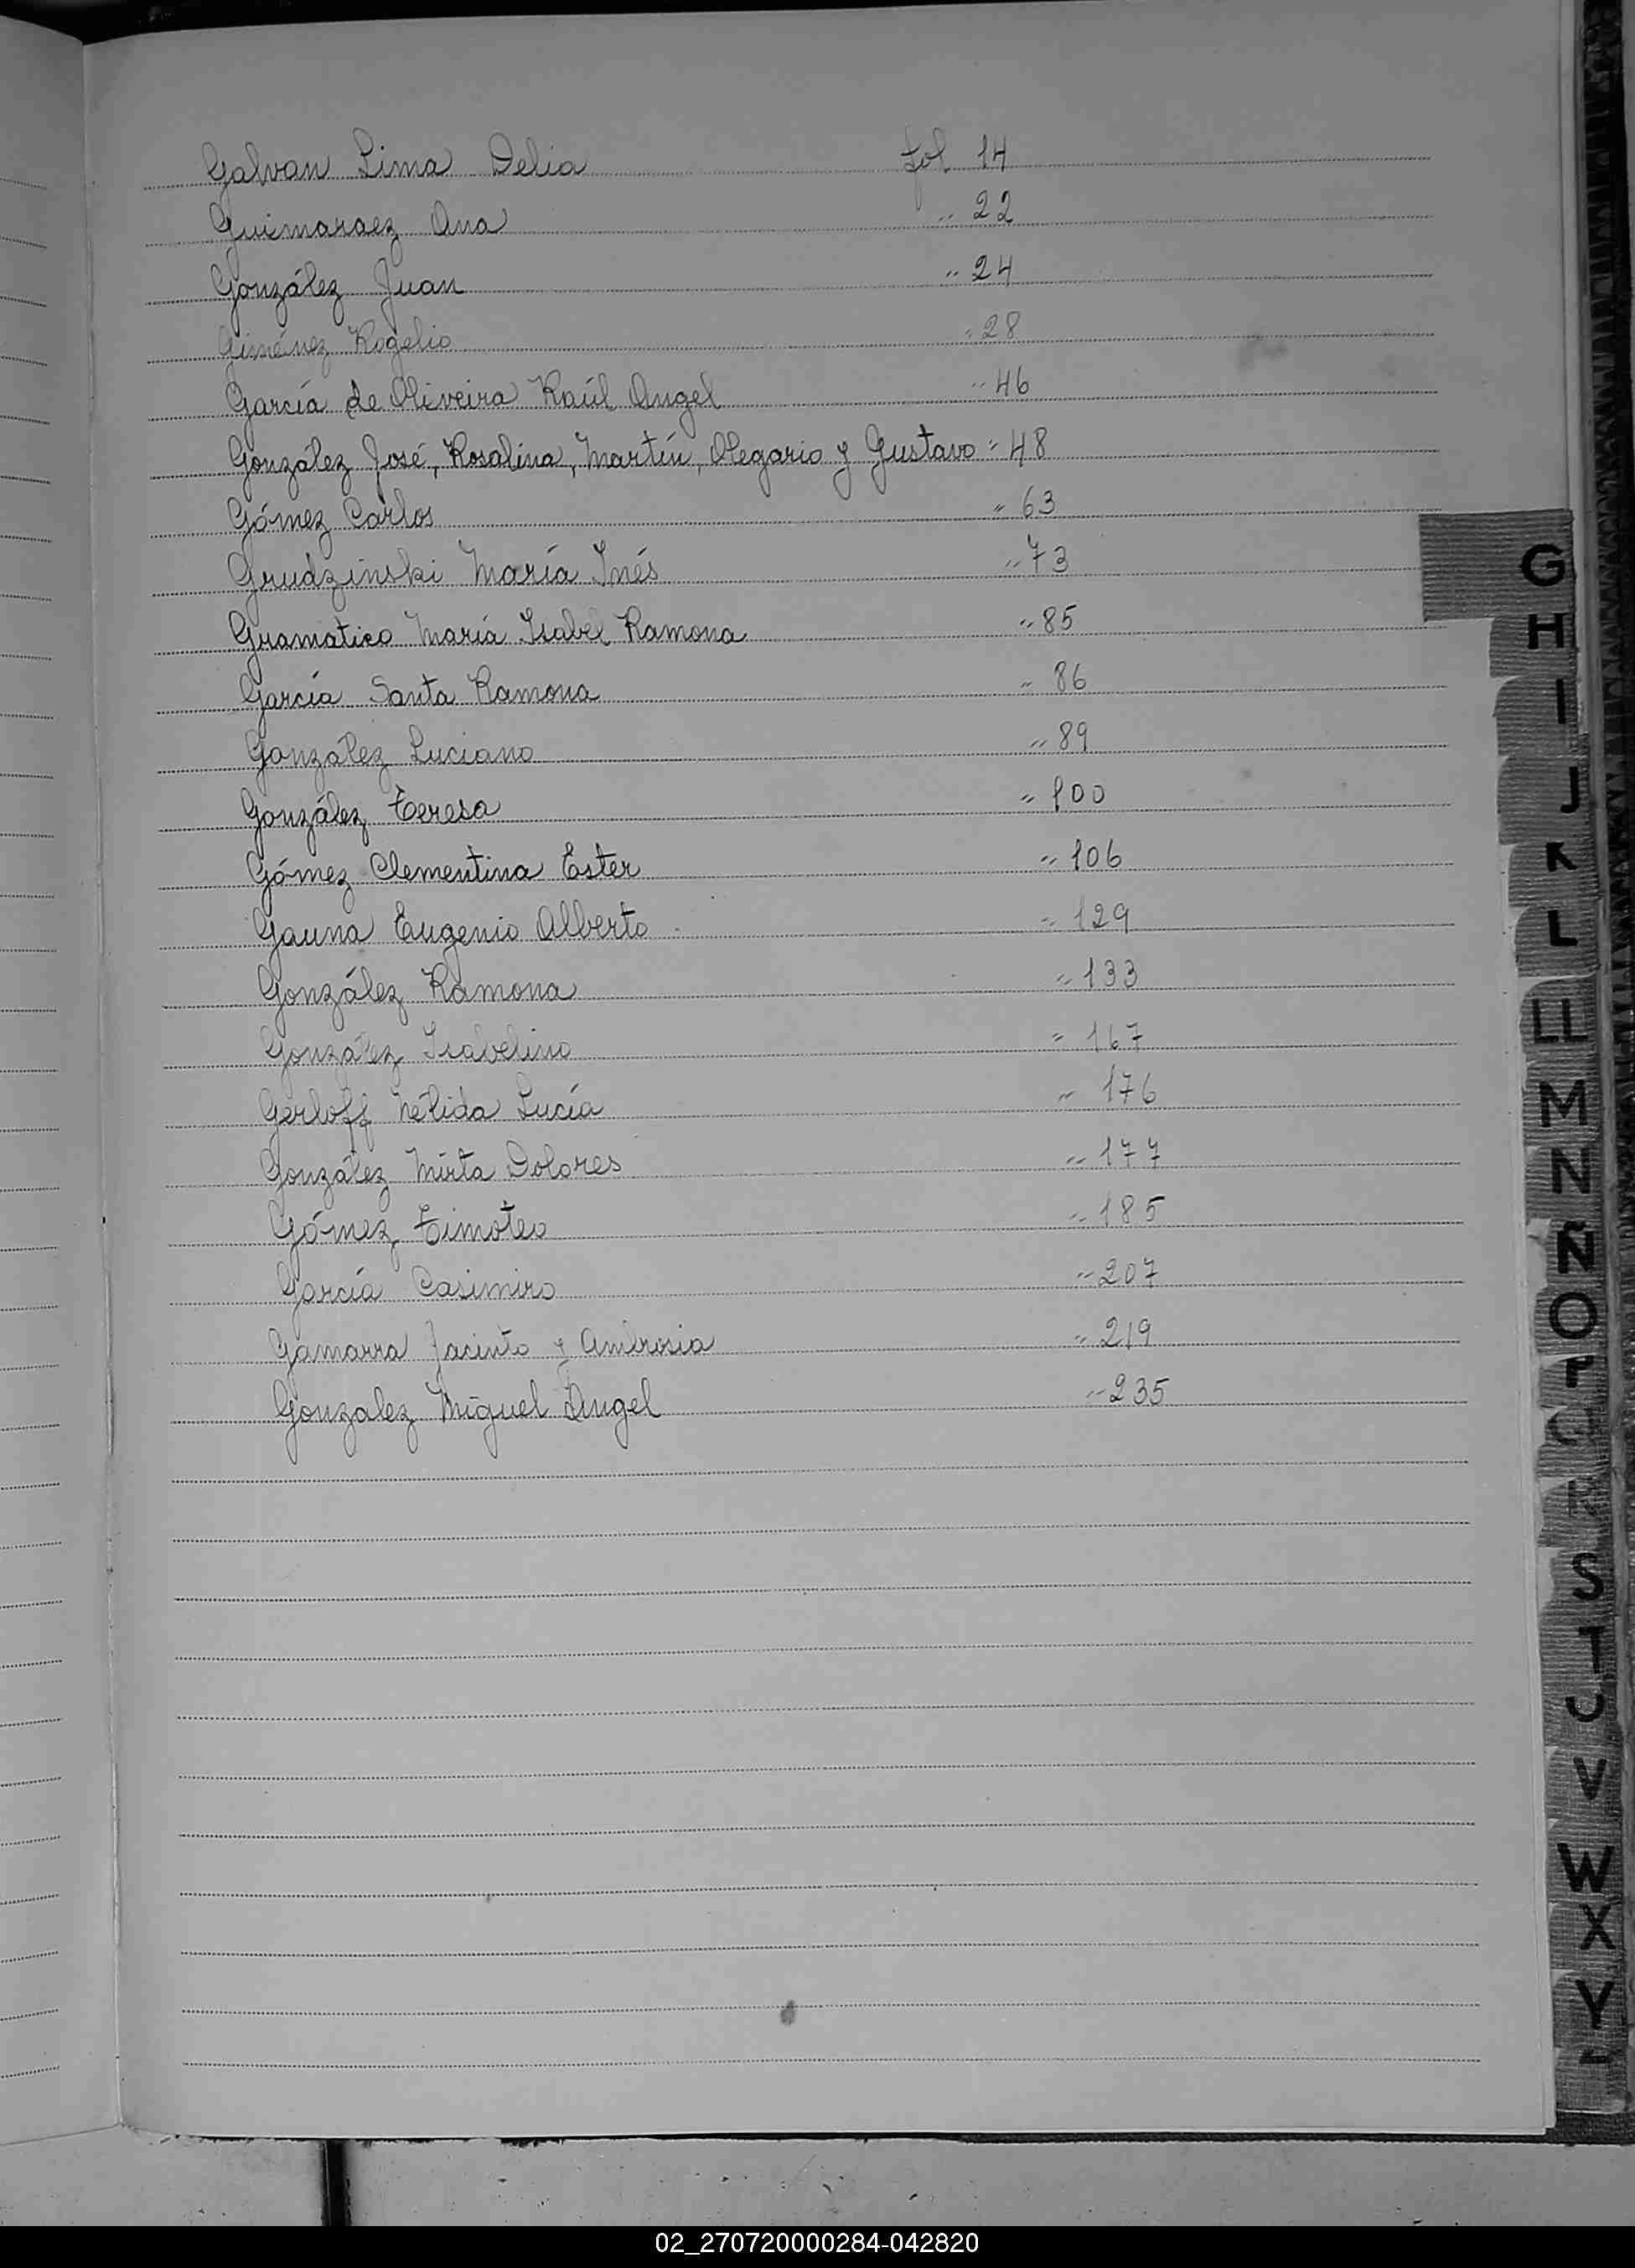 Galvan Lima Delia fol 14
Guimaraez Ana " 22
González Juan " 24
Giménez Rogelio " 28
García de Oliveira Raúl Angel " 46
González José, Rosalina, Martín, Olegario y Gustavo " 48
Gómez Carlos " 63
Grudzinski María Inés " 73
Gramatico María Isabel Ramona " 85
García Santa Ramona " 86
González Luciano " 89
González Teresa " 100
Gómez Clementina Ester " 106
Gauna Eugenio Alberto " 129
González Ramona " 133
González Isabelino " 167
Gerloff Nélida Lucía " 176
González Mirta Dolores " 177
Gómez Timoteo " 185
García Casimiro " 207
Gamarra Jacinto y Ambrosia " 219
Gonzalez Miguel Angel " 235
G
H
I
J
K
L
LL
M
N
Ñ
O
P
Q
R
S
T
U
V
W
X
Y
02_270720000284-042820